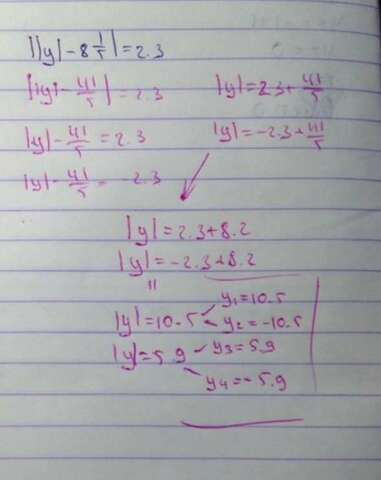 ||y|-8 1/5|=2.3
||y|-41/5|=2.3
|y|-41/5=2.3
|y|-41/5=-2.3
|y|=2.3+41/5
|y|=-2.3+41/5
|y|=2.3+8.2
|y|=-2.3+8.2
|y|=10.5 y₁=10.5
y₂=-10.5
|y|=5.9 y₃=5.9
y₄=-5.9